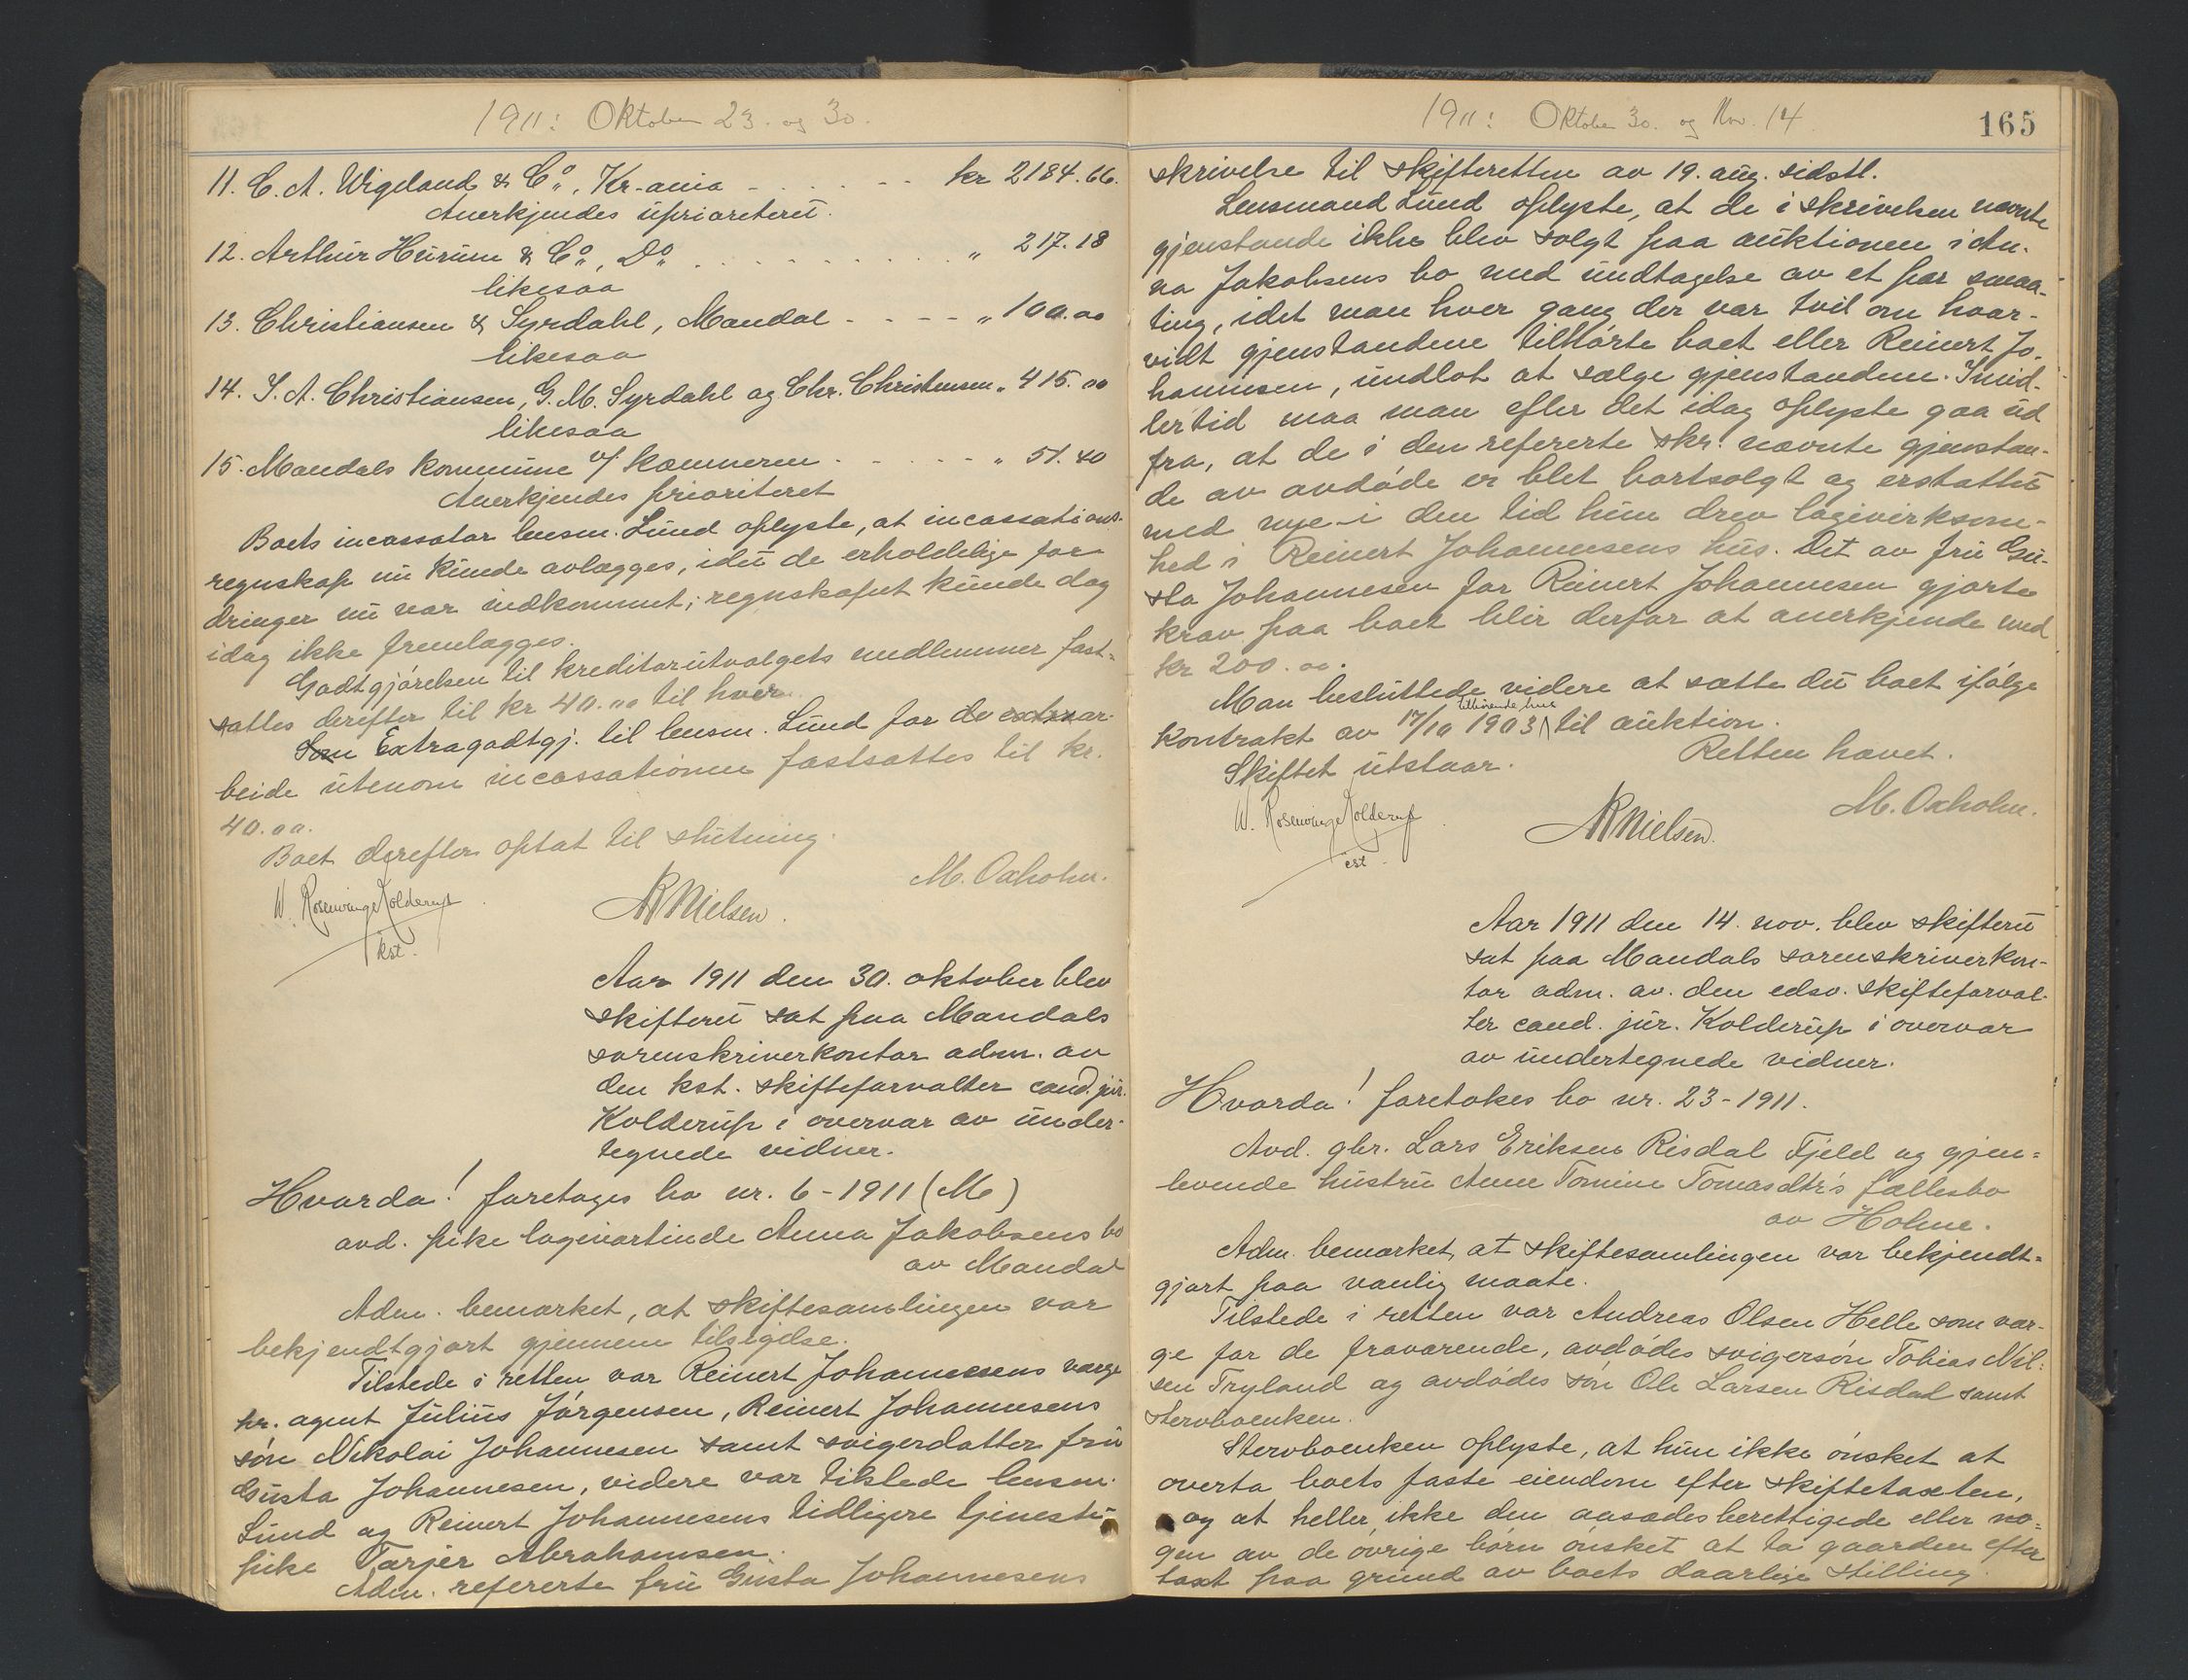 1911: Oktober 23. og 30.
11. C. A. Wigeland & Co., Kr-ania - - - - - - kr 2184.66.
Anerkjendes uprioriteret.
12. Arthur Heurum & Co., Do. . . . . . . . . . . " 217.18
likesaa
13. Christiansen & Syrdahl, Mandal - - - - - " 100.00
likesaa
14. S. A. Christiansen, G. M. Syrdahl og Chr. Christensen " 415.00
likesaa
15. Mandals kommune v/ kæmneren - - - - - - " 51.40
Anerkjendes prioriteret
Boets incassator lensm. Lund oplyste, at incassations-
regnskap nu kunde avlægges, idet de erholdelige for-
dringer nu var indkommet; regnskapet kunde dog
idag ikke fremlægges.
Godtgjørelsen til kreditorutvalgets medlemmer fast-
sattes derefter til kr 40.00 til hver.
Som Extragodtgj. til lensm. Lund for de extraar-
beide utenom incassationen fastsattes til kr.
40.00.
Boet derefter optat til slutning.
M. Oxholm.
W. Rosenvinge Kolderup
kst.
AR Nielsen.
Aar 1911 den 30. oktober blev
skifteret sat paa Mandals
sorenskriverkontor adm. av
den kst. skifteforvalter cand. jur.
Kolderup i overvær av under-
tegnede vidner.
Hvorda! foretages bo nr. 6 - 1911 (M)
avd. pike logivertinde Anna Jakobsens bo
av Mandal
Adm. bemerket, at skiftesamlingen var
bekjendtgjort gjennem tilsigelse.
Tilstede i retten var Reinert Johannesens værge
hr. agent Julius Jørgensen, Reinert Johannesens
søn Nikolai Johannesen samt svigerdatter fru
Gusta Johannesen, videre var tilstede lensm.
Lund og Reinert Johannesens tidligere tjeneste-
pike Tarjer Abrahamsen.
Adm. refererte fru Gusta Johannesens
1911: Oktober 30. og Nov. 14.
165
skrivelse til skifteretten av 19. aug. sidstl.
Lensmand Lund oplyste, at de i skrivelsen nævnte
gjenstande ikke blev solgt paa auktionen i An-
na Jakobsens bo med undtagelse av et par smaa-
ting, idet man hver gang der var tvil om hvor-
vidt gjenstandene tilhørte boet eller Reinert Jo-
hannesen, undlot at sælge gjenstandene. Imid-
lertid maa man efter det idag oplyste gaa ud
fra, at de i den refererte skr. nævnte gjenstan-
de av avdøde er blet bortsolgt og erstattet
med nye i den tid hun drev logivirksom-
hed i Reinert Johannesens hus. Det av fru Gu-
sta Johannesen for Reinert Johannesen gjorte
krav paa boet blir derfor at anerkjende med
kr 200.00.
Man besluttede videre at sætte det boet ifølge
kontrakt av 17/10 1903 tilhørende hus til auktion.
Skiftet utstaar.
Retten hævet.
M. Oxholm.
W. Rosenvinge Kolderup
cst
AR Nielsen.
Aar 1911 den 14. nov. blev skifteret
sat paa Mandals sorenskriverkon-
tor adm. av. den edsv. skifteforval-
ter cand. jur. Kolderup i overvær
av undertegnede vidner.
Hvorda! foretokes bo nr. 23 - 1911.
Avd. gbr. Lars Eriksen Risdal Fjeld og gjen-
levende hustru Anne Tomine Tomasdtr's fællesbo
av Holme.
Adm. bemerket, at skiftesamlingen var bekjendt-
gjort paa vanlig maate.
Tilstede i retten var Andreas Olsen Helle som vær-
ge for de fraværende, avdødes svigersøn Tobias Nil-
sen Tryland og avdødes søn Ole Larsen Risdal samt
stervboenken.
Stervboenken oplyste, at hun ikke ønsket at
overta boets faste eiendom efter skiftetaxten,
og at heller ikke den aasædesberettigede eller no-
gen av de øvrige børn ønsket at ta gaarden efter
taxt paa grund av boets daarlige stilling.